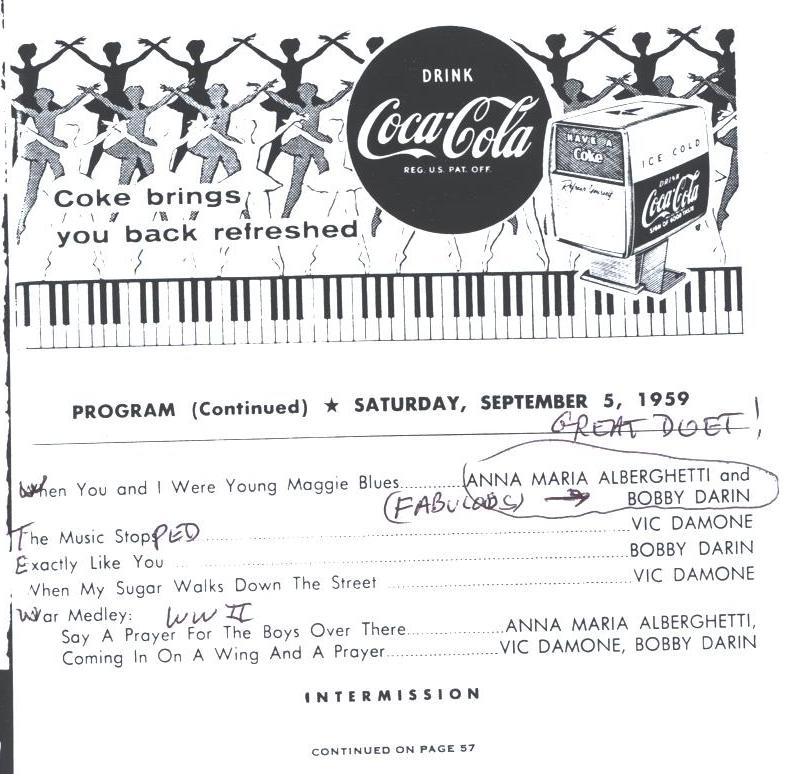 DRINK
Coca-Cola
REG. U.S. PAT. OFF.
HAVE A
Coke
ICE COLD
Refresh Yourself
DRINK
Coca-Cola
SIGN OF GOOD TASTE
Coke brings
you back refreshed
PROGRAM (Continued) ★ SATURDAY, SEPTEMBER 5, 1959
GREAT DUET!
When You and I Were Young Maggie Blues..........ANNA MARIA ALBERGHETTI and
(FABULOUS) → BOBBY DARIN
The Music StopPED..........VIC DAMONE
Exactly Like You..........BOBBY DARIN
When My Sugar Walks Down The Street..........VIC DAMONE
War Medley: WW II
Say A Prayer For The Boys Over There..........ANNA MARIA ALBERGHETTI,
Coming In On A Wing And A Prayer..........VIC DAMONE, BOBBY DARIN
INTERMISSION
CONTINUED ON PAGE 57